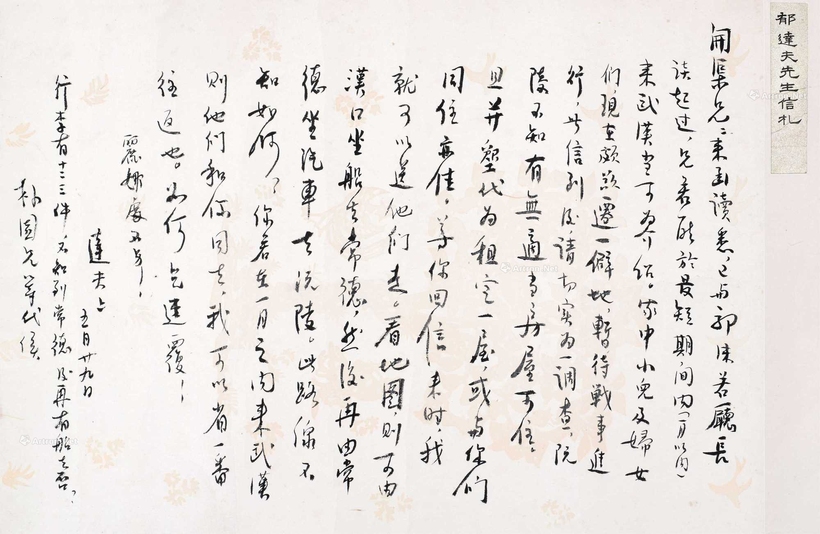 郁達夫先生信札
開渠兄：来函讀悉，已与郭沫若廳長
談起过，兄若能於最短期間内（一月以内）
来武漢当可为介紹。家中小兒及婦女
们，現在頗思遷一僻地，暫待戰事進
行，此信到後，請切实为一調查，沅
陵不知有無適当房屋可住。
且并塾代为租定一屋，或与你们
同住亦佳，等你回信来时，我
就可以送他们走。看地圖，则可由
漢口坐船去常德，然後再由常
德坐汽車去沅陵。此路線不
知如何？你若在一月之内来武漢
则他们和你同去，我可以省一番
往返也。如何乞速覆，
麗娜處不另，
達夫上
五月廿九日
行李有十二三件不知到常德後再有船去否？
朴園兄等代候